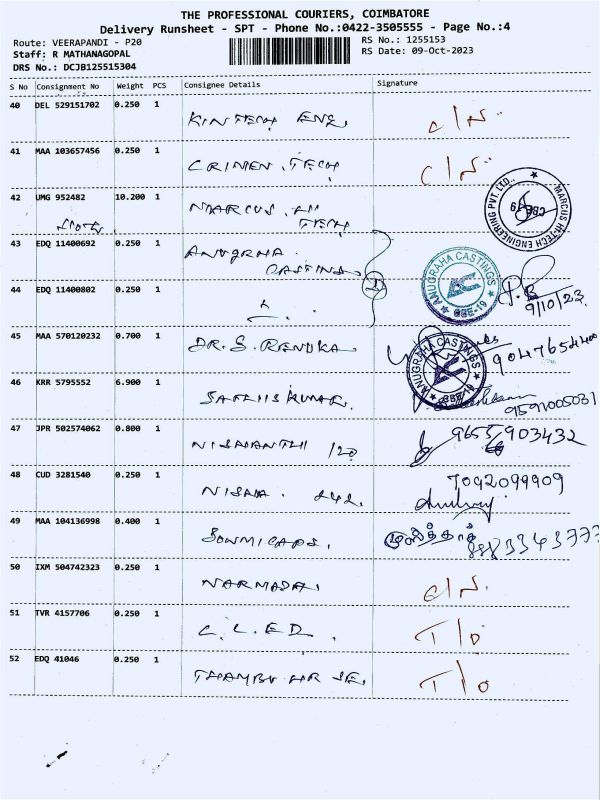 THE PROFESSIONAL COURIERS, COIMBATORE
Delivery Runsheet - SPT - Phone No.:0422-3505555 - Page No.:4
Route: VEERAPANDI - P20
RS No.: 1255153
Staff: R MATHANAGOPAL
RS Date: 09-Oct-2023
DRS No.: DCJB125515304
S No Consignment No Weight PCS Consignee Details Signature
40 DEL 529151702 0.250 1 KINTECH ENG. C/N
41 MAA 103657456 0.250 1 CRIMEN. TECH C/N
42 UMG 952482 10.200 1 MARCUS. HI TECH
MARCUS HI-TECH ENGINEERING PVT. LTD.,
CBE-19
43 EDQ 11400692 0.250 1 ANUGRHA. CASTING
ANUGRAHA CASTINGS
CBE-19
44 EDQ 11400802 0.250 1
9/10/23
45 MAA 570120232 0.700 1 DR. S. RENUKA
ANUGRAHA CASTINGS
CBE-19
46 KRR 5795552 6.900 1 SATHISKUMAR. 9591005031
47 JPR 502574062 0.800 1 NISHANTHI 120 9655 903432
48 CUD 3281540 0.250 1 NISHA. 242. 7092099909
49 MAA 104136998 0.400 1 SOWMICAPS.
50 IXM 504742323 0.250 1 NARMADA. C/N.
51 TVR 4157706 0.250 1 C.L.ED. T/O
52 EDQ 41046 0.250 1 T/O